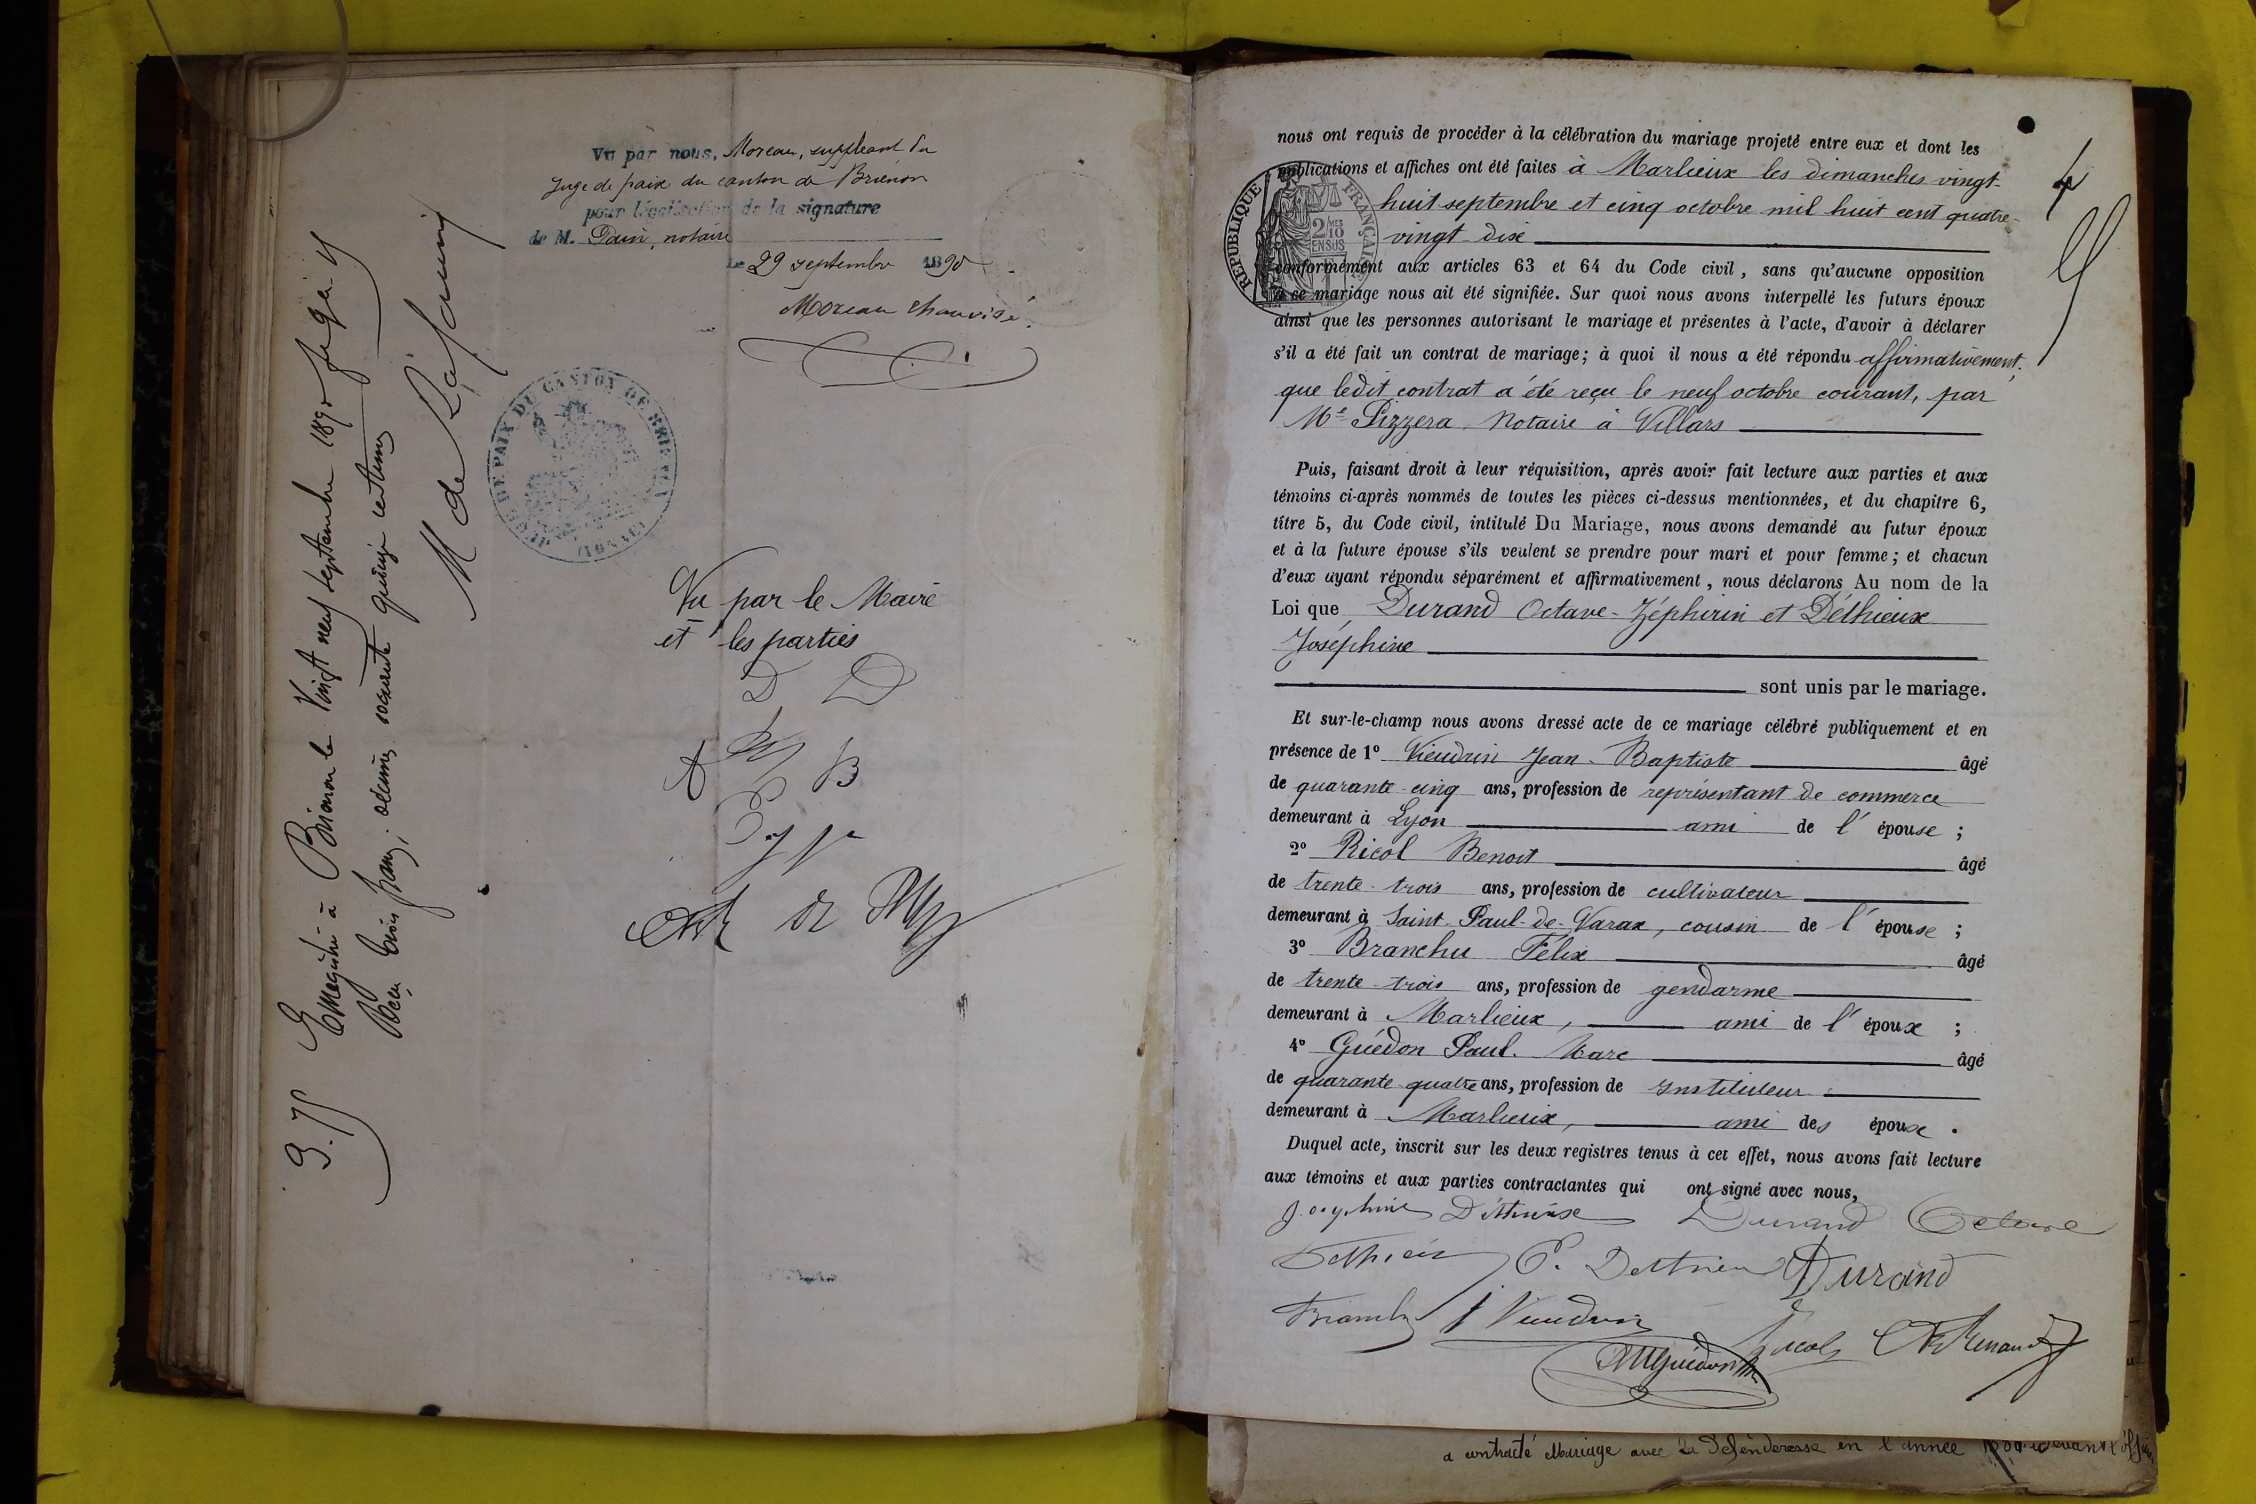 Vu par nous, Moreau, suppléant du
Juge de paix du canton de Brienon
pour légalisation de la signature
de M. Pain, notaire
Le 29 septembre 1890
Moreau Chauvisé
JUGE DE PAIX DU CANTON DE BRIENON
(YONNE)
Enregistré à Brienon le Vingt neuf septembre 1890
Reçu trois francs, décimes soixante quinze centimes
3.75
Vu par le Maire
et les parties
D D
B
nous ont requis de procéder à la célébration du mariage projeté entre eux et dont les
publications et affiches ont été faites à Marlieux les dimanches vingt-
huit septembre et cinq octobre mil huit cent quatre-
vingt dix
RÉPUBLIQUE FRANÇAISE
2/10 EN SUS
conformément aux articles 63 et 64 du Code civil, sans qu'aucune opposition
à ce mariage nous ait été signifiée. Sur quoi nous avons interpellé les futurs époux
ainsi que les personnes autorisant le mariage et présentes à l'acte, d'avoir à déclarer
s'il a été fait un contrat de mariage; à quoi il nous a été répondu affirmativement,
que ledit contrat a été reçu le neuf octobre courant, par
Me Pizzera Notaire à Villars
Puis, faisant droit à leur réquisition, après avoir fait lecture aux parties et aux
témoins ci-après nommés de toutes les pièces ci-dessus mentionnées, et du chapitre 6,
titre 5, du Code civil, intitulé Du Mariage, nous avons demandé au futur époux
et à la future épouse s'ils veulent se prendre pour mari et pour femme; et chacun
d'eux ayant répondu séparément et affirmativement, nous déclarons Au nom de la
Loi que Durand Octave-Zéphirin et Déthieux
Joséphine
sont unis par le mariage.
Et sur-le-champ nous avons dressé acte de ce mariage célébré publiquement et en
présence de 1º Vieudrin Jean-Baptiste âgé
de quarante-cinq ans, profession de représentant de commerce
demeurant à Lyon ami de l'épouse ;
2º Ricol Benoit âgé
de trente-trois ans, profession de cultivateur
demeurant à Saint-Paul-de-Varax, cousin de l'épouse ;
3º Branchu Félix âgé
de trente-trois ans, profession de gendarme
demeurant à Marlieux, ami de l'époux ;
4º Guédon Paul-Marc âgé
de quarante-quatre ans, profession de instituteur
demeurant à Marlieux, ami des époux.
Duquel acte, inscrit sur les deux registres tenus à cet effet, nous avons fait lecture
aux témoins et aux parties contractantes qui ont signé avec nous,
Josephine Déthieux Durand Octave
Dethieux P. Dethieu Durand
Branchu J Vieudrin Ricol Renaud
Guédon
a contracté Mariage avec la Défenderesse en l'année